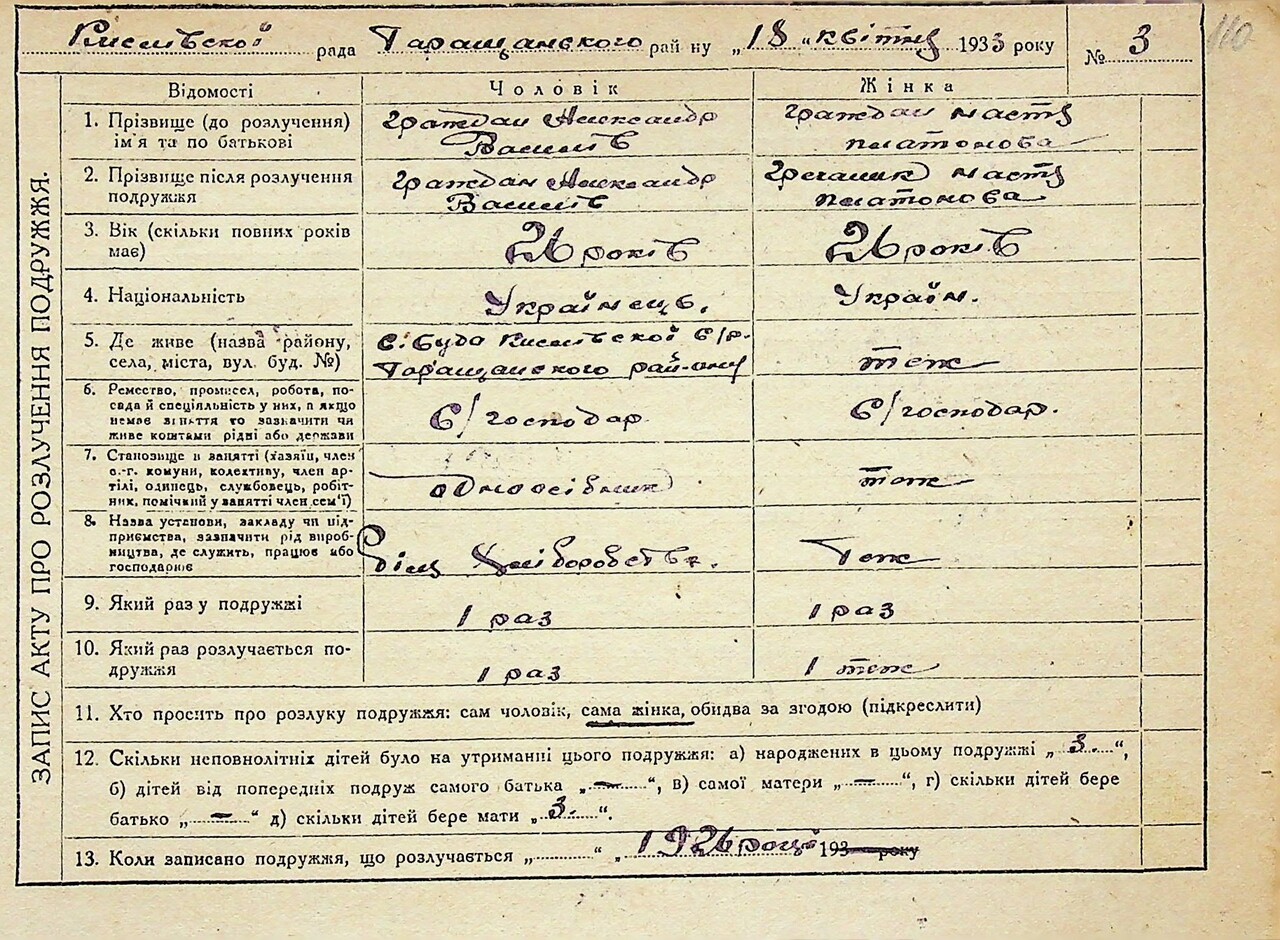 Кислівської рада Таращанского райну „18 „квітня 1933 року
№ 3
110
ЗАПИС АКТУ ПРО РОЗЛУЧЕННЯ ПОДРУЖЖЯ.
Відомості Чоловік Жінка
1. Прізвище (до розлучення) Граждан Александр Граждан Настя
ім'я та по батькові Василів платонова
2. Прізвище після розлучення Граждан Александр Гречаник Настя
подружжя Василів платонова
3. Вік (скільки повних років 26 років 26 років
має)
4. Національність Українець. Україн.
5. Де живе (назва району, с. Буда Кислівської С/р.
села, міста, вул. буд. №) Таращанского рай-ону теж
6. Ремество, промисел, робота, по-
сада й спеціяльність у них, а якщо С/господар С/господар.
немає зняття то зазначити чи
живе коштами рідні або держави
7. Становище в занятті (хазяїн, член
с.-г. комуни, колективу, член ар- одноосібник теж
тілі, одинець, службовець, робіт-
ник, помічний у занятті член сем'ї)
8. Назва установи, закладу чи під-
приємства, зазначити рід вироб-
ництва, де служить, працює або Хліборобств. Теж
господарює
9. Який раз у подружжі 1 раз 1 раз
10. Який раз розлучається по- 1 раз 1 теж
дружжя
11. Хто просить про розлуку подружжя: сам чоловік, сама жінка, обидва за згодою (підкреслити)
12. Скільки неповнолітніх дітей було на утриманні цього подружжя: а) народжених в цьому подружжі „ 3. “,
б) дітей від попередніх подруж самого батька „ — “, в) самої матери „ — “, г) скільки дітей бере
батько „ — “ д) скільки дітей бере мати „ 3. “.
13. Коли записано подружжя, що розлучається „ “ „ 1926 році 193 року